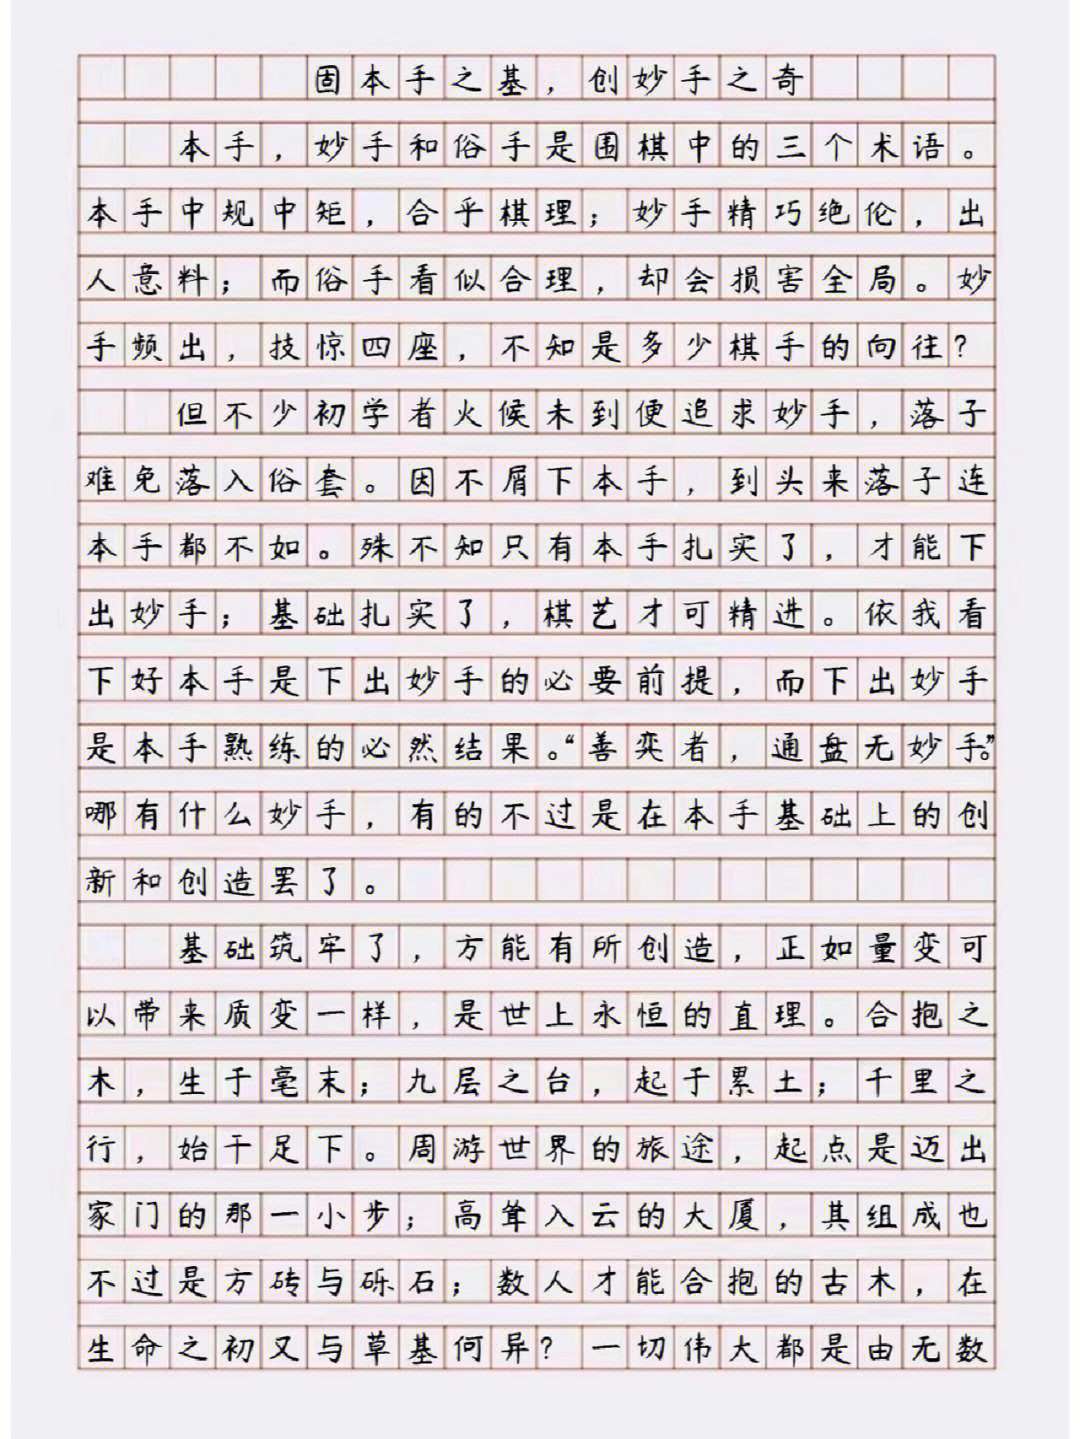 固本手之基，创妙手之奇
本手，妙手和俗手是围棋中的三个术语。
本手中规中矩，合乎棋理；妙手精巧绝伦，出
人意料；而俗手看似合理，却会损害全局。妙
手频出，技惊四座，不知是多少棋手的向往？
但不少初学者火候未到便追求妙手，落子
难免落入俗套。因不屑下本手，到头来落子连
本手都不如。殊不知只有本手扎实了，才能下
出妙手；基础扎实了，棋艺才可精进。依我看
下好本手是下出妙手的必要前提，而下出妙手
是本手熟练的必然结果。“善奕者，通盘无妙手。”
哪有什么妙手，有的不过是在本手基础上的创
新和创造罢了。
基础筑牢了，方能有所创造，正如量变可
以带来质变一样，是世上永恒的直理。合抱之
木，生于毫末；九层之台，起于累土；千里之
行，始于足下。周游世界的旅途，起点是迈出
家门的那一小步；高耸入云的大厦，其组成也
不过是方砖与砾石；数人才能合抱的古木，在
生命之初又与草基何异？一切伟大都是由无数